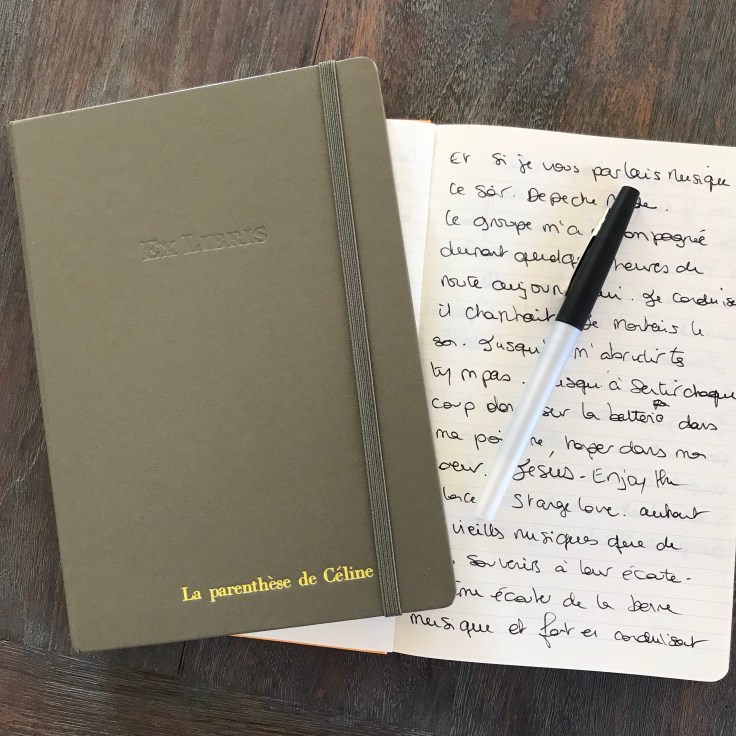 EX LIBRIS
La parenthèse de Céline
Et si je vous parlais musique
ce soir. Depeche
Le groupe m'a
durant heures de
route Je conduis
il chantait Je montais le
son. Jusqu' m'abrutir ts
tympas. sentir chaque
coup sur la batterie dans
ma dans mon
coeur. Jesus - Enjoy the
Stange Love. autant
vieills musiques que de
souvenirs à leur écoute.
écouter de la bonne
musique et fort en conduisant